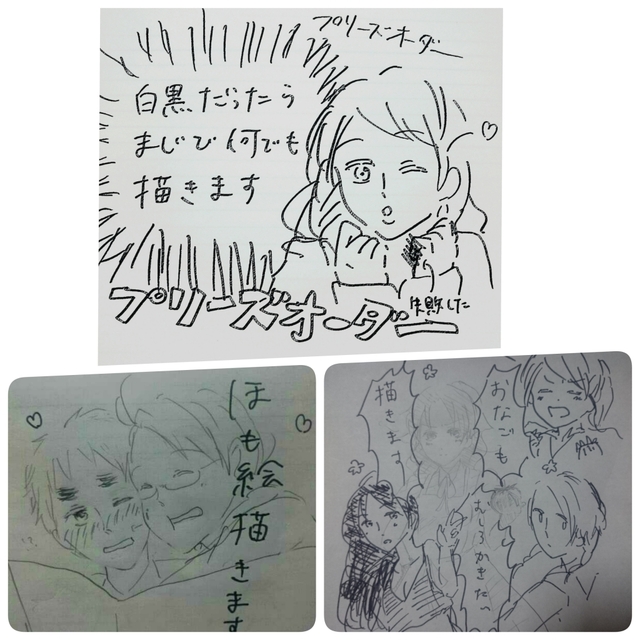 プリーズオーダー
白黒だったら
まじで何でも
描きます
プリーズオーダー
失敗した
ほも絵描きます
おなごも
描きます
むしろかきたい